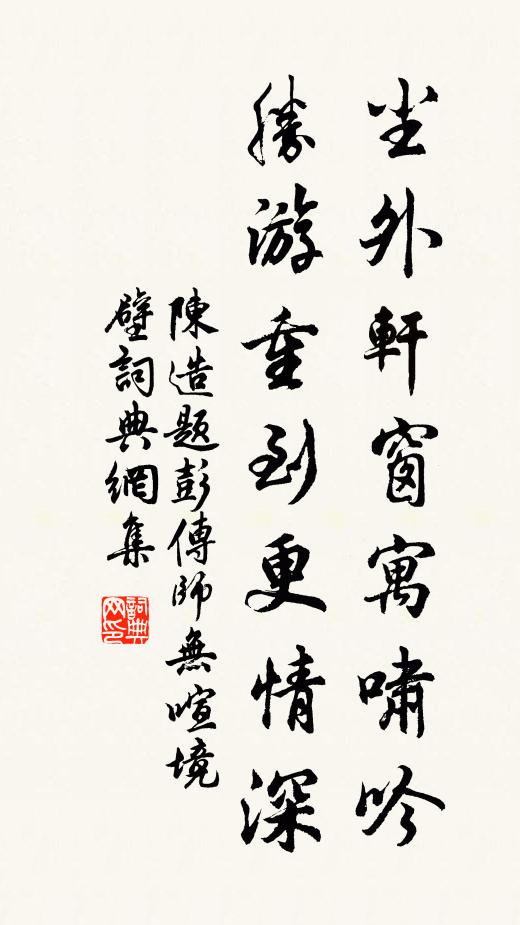 尘外軒窗寓嘯吟
勝游重到更情深
陳造題彭傅師無喧境
壁詞典網集
詞典
网印